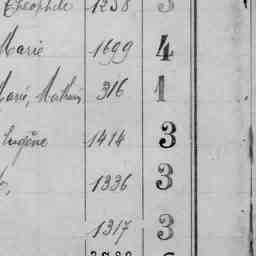 Théophile 1258 3
Marie 1699 4
Marié, 316 1
Eugène 1414 3
1336 3
1317 3